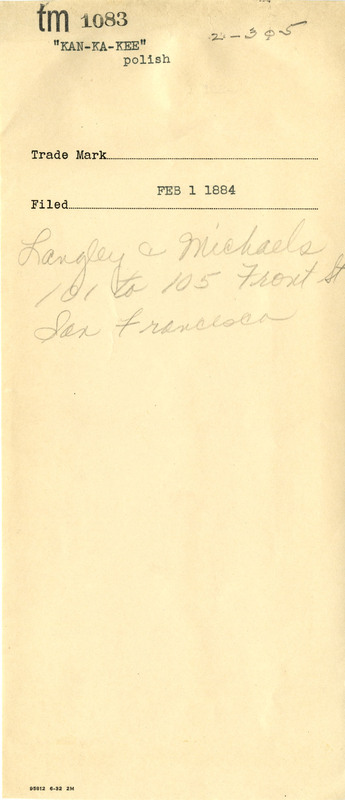 tm 1083
2-305
"KAN-KA-KEE"
polish
Trade Mark
FEB 1 1884
Filed
Langley & Michaels
101 to 105 Front St
San Francisco
95812 6-32 2M